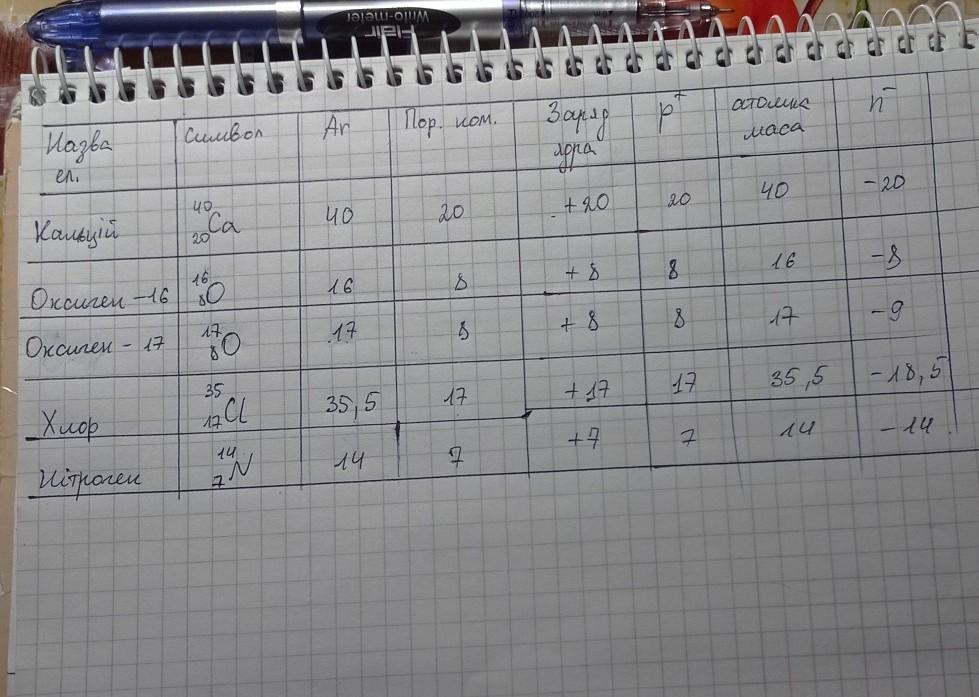 Flair
Writo-meter
Назва ел. Символ Ar Пор. ном. Заряд ядра p⁺ атомна маса n⁻
Кальцій ⁴⁰₂₀Ca 40 20 +20 20 40 -20
Оксиген -16 ¹⁶₈O 16 8 +8 8 16 -8
Оксиген - 17 ¹⁷₈O 17 8 +8 8 17 -9
Хлор ³⁵₁₇Cl 35,5 17 +17 17 35,5 -18,5
Нітроген ¹⁴₇N 14 7 +7 7 14 -14